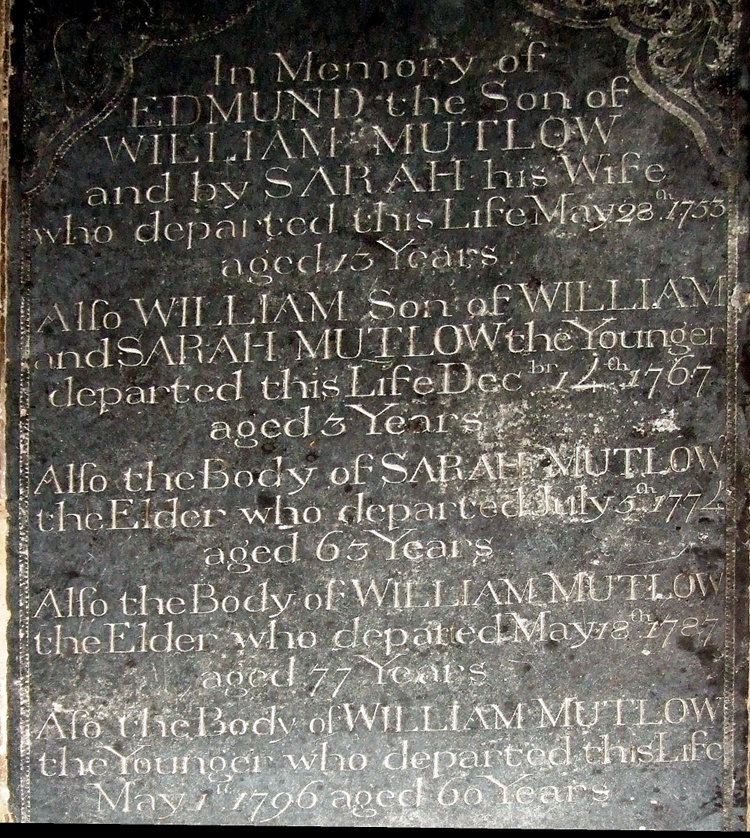 In Memory of
EDMUND the Son of
WILLIAM MUTLOW
and by SARAH his Wife
who departed this Life May 28th 1753
aged 13 Years
Alſo WILLIAM Son of WILLIAM
and SARAH MUTLOW the Younger
departed this Life Decbr 14th 1767
aged 3 Years
Alſo the Body of SARAH MUTLOW
the Elder who departed July 5th 1774
aged 65 Years
Alſo the Body of WILLIAM MUTLOW
the Elder who departed May 18th 1787
aged 77 Years
Alſo the Body of WILLIAM MUTLOW
the Younger who departed this Life
May 1st 1796 aged 60 Years